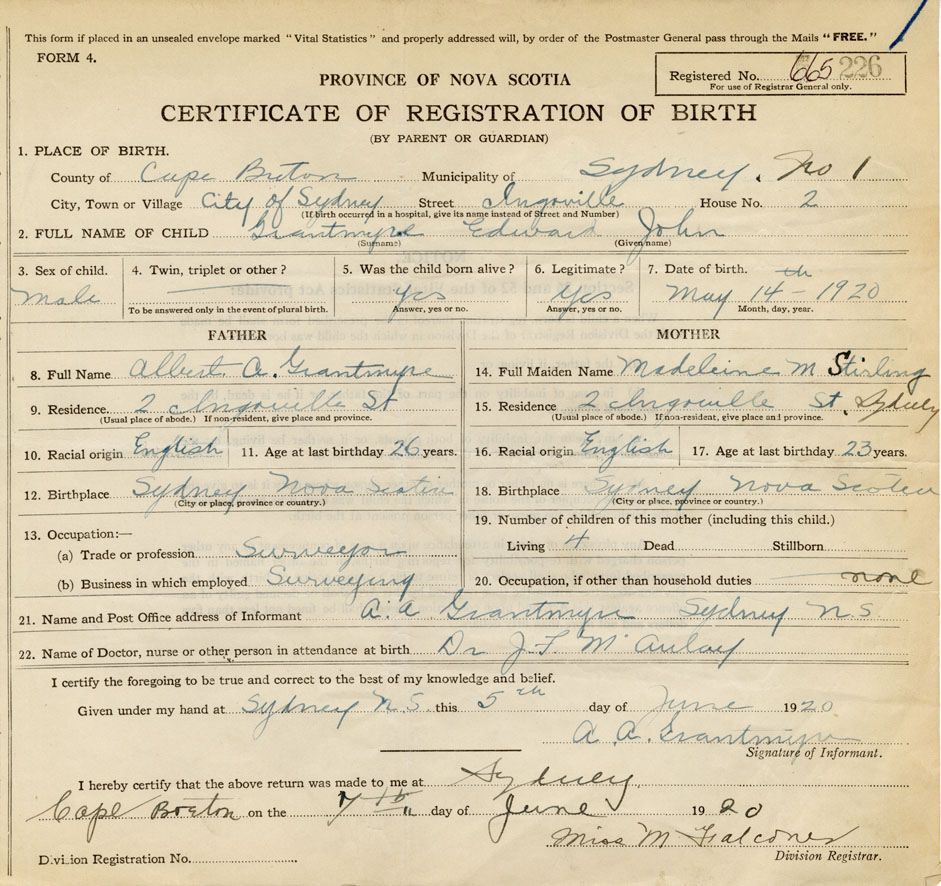 This form if placed in an unsealed envelope marked "Vital Statistics" and properly addressed will, by order of the Postmaster General pass through the Mails "FREE."
FORM 4.
Registered No. 665 226
For use of Registrar General only.
PROVINCE OF NOVA SCOTIA
CERTIFICATE OF REGISTRATION OF BIRTH
(BY PARENT OR GUARDIAN)
1. PLACE OF BIRTH.
County of Cape Breton Municipality of Sydney. No 1
City, Town or Village City of Sydney Street Ingoville House No. 2
(If birth occurred in a hospital, give its name instead of Street and Number)
2. FULL NAME OF CHILD Grantmyre Edward John
(Surname) (Given name)
3. Sex of child. 4. Twin, triplet or other? 5. Was the child born alive? 6. Legitimate? 7. Date of birth.
Male Yes Yes May 14th - 1920
To be answered only in the event of plural birth. Answer, yes or no. Answer, yes or no. Month, day, year.
FATHER MOTHER
8. Full Name Albert A. Grantmyre 14. Full Maiden Name Madeleine M Stirling
9. Residence. 2 Ingoville St 15. Residence 2 Ingoville St, Sydney
(Usual place of abode.) If non-resident, give place and province. (Usual place of abode.) If non-resident, give place and province.
10. Racial origin English 11. Age at last birthday 26 years. 16. Racial origin English 17. Age at last birthday 23 years.
12. Birthplace Sydney Nova Scotia 18. Birthplace Sydney Nova Scotia
(City or place, province or country.) (City or place, province or country.)
13. Occupation:— 19. Number of children of this mother (including this child.)
(a) Trade or profession Surveyor Living 4 Dead Stillborn
(b) Business in which employed Surveying 20. Occupation, if other than household duties none
21. Name and Post Office address of Informant A. A Grantmyre Sydney N.S.
22. Name of Doctor, nurse or other person in attendance at birth Dr J.F. McAulay
I certify the foregoing to be true and correct to the best of my knowledge and belief.
Given under my hand at Sydney N.S. this 5th day of June 1920
A. A. Grantmyre
Signature of Informant.
I hereby certify that the above return was made to me at Sydney
Cape Breton on the 7th day of June 1920
Miss M Falconer
Division Registrar.
Division Registration No.